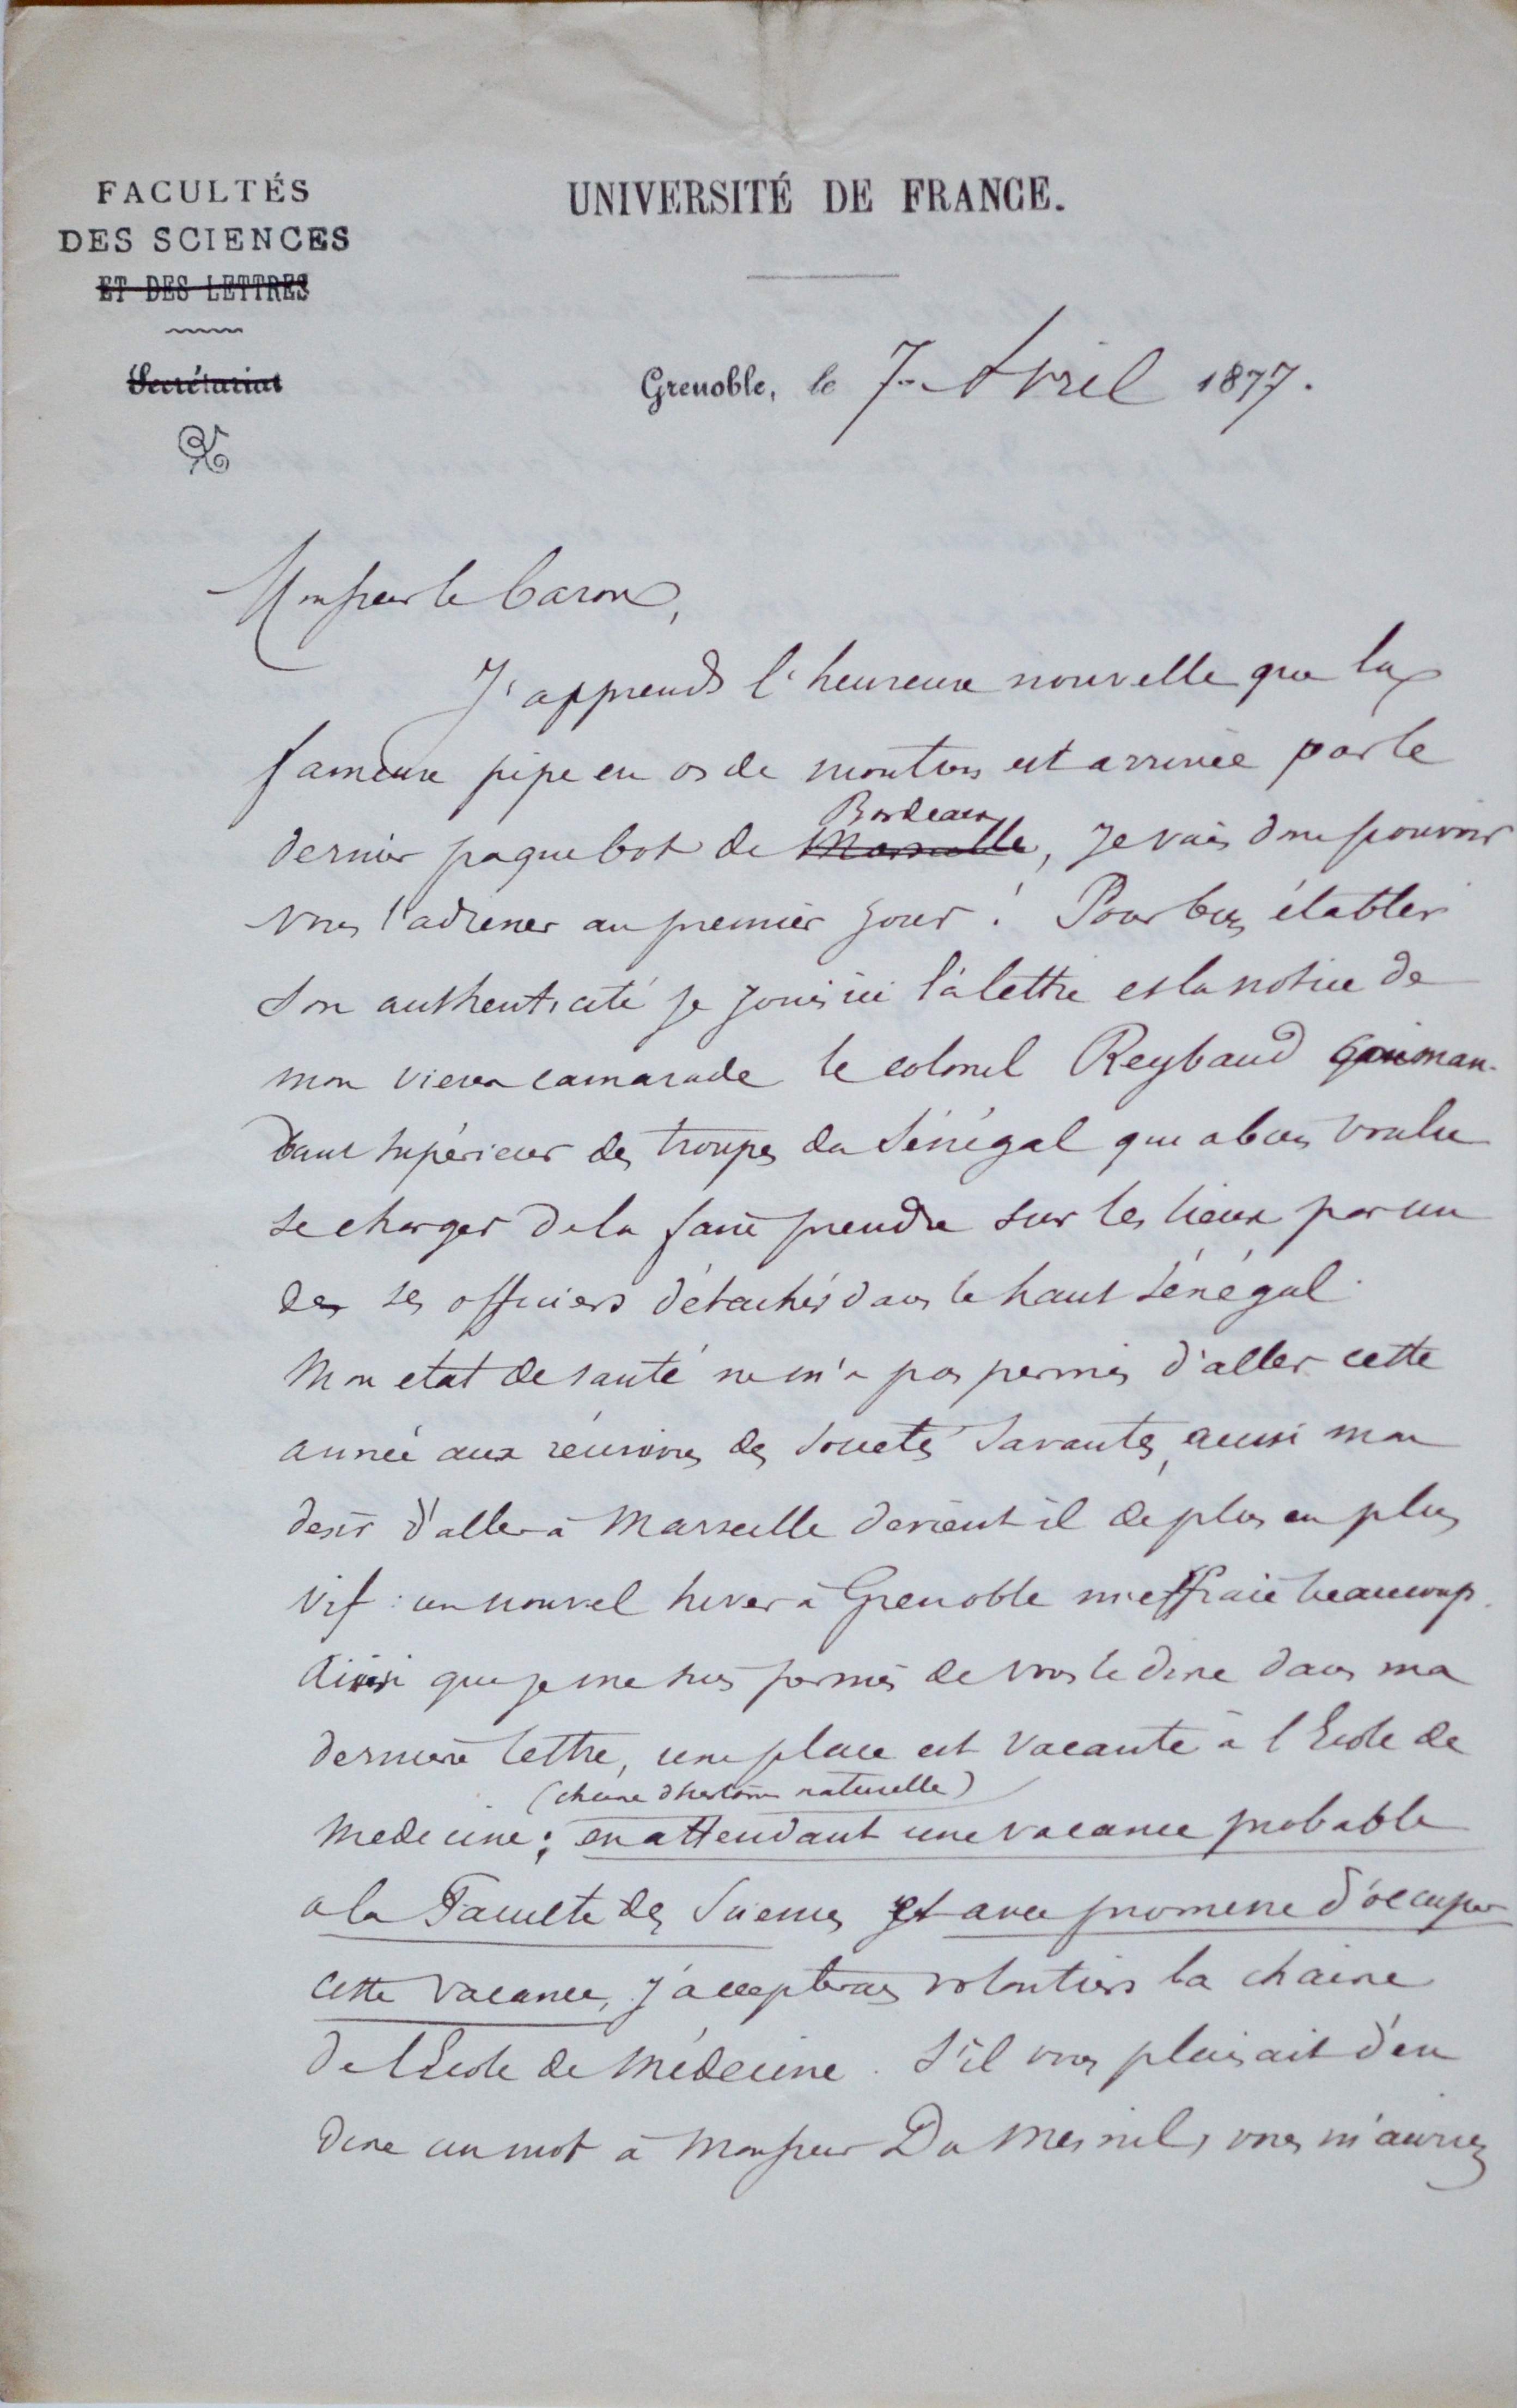 FACULTÉS
DES SCIENCES
ET DES LETTRES
Secrétariat
UNIVERSITÉ DE FRANCE.
Grenoble, le 7 Avril 1877.
Monsieur le baron,
J'apprends l'heureuse nouvelle que la
fameuse pipe en os de mouton est arrivée par le
Bordeaux
dernier paquebot de Marseille, je vais donc pouvoir
vous l'adresser au premier jour ! Pour bien établir
son authenticité je joins ici la lettre et la notice de
mon vieux camarade le colonel Reybaud comman-
dant supérieur des troupes du Sénégal qui a bien voulu
se charger de la faire prendre sur les lieux par un
de ses officiers détachés dans le haut Sénégal.
Mon etat de santé ne m'a pas permis d'aller cette
année aux réunions des Sociétés Savantes, aussi mon
desir d'aller à Marseille devient il de plus en plus
vif : un nouvel hiver à Grenoble m'effraie beaucoup.
Ainsi que je me suis permis de vous le dire dans ma
dernière lettre, une place est vacante à l'Ecole de
(chaire d'histoire naturelle)
Medecine ; en attendant une vacance probable
a la Faculté des Sciences et avec promesse d'occuper
cette vacance, j'accepterais volontiers la chaire
de l'Ecole de Médecine. S'il vous plaisait d'en
dire un mot à Monsieur Du Mesnil, vous m'auriez